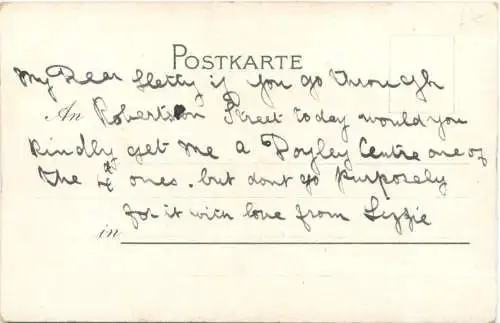 POSTKARTE
My Dear Hetty if you go through
An Robertson Street today would you
kindly get me a Doyley Centre one of
the ones. but dont go purposely
for it with love from Lizzie
in